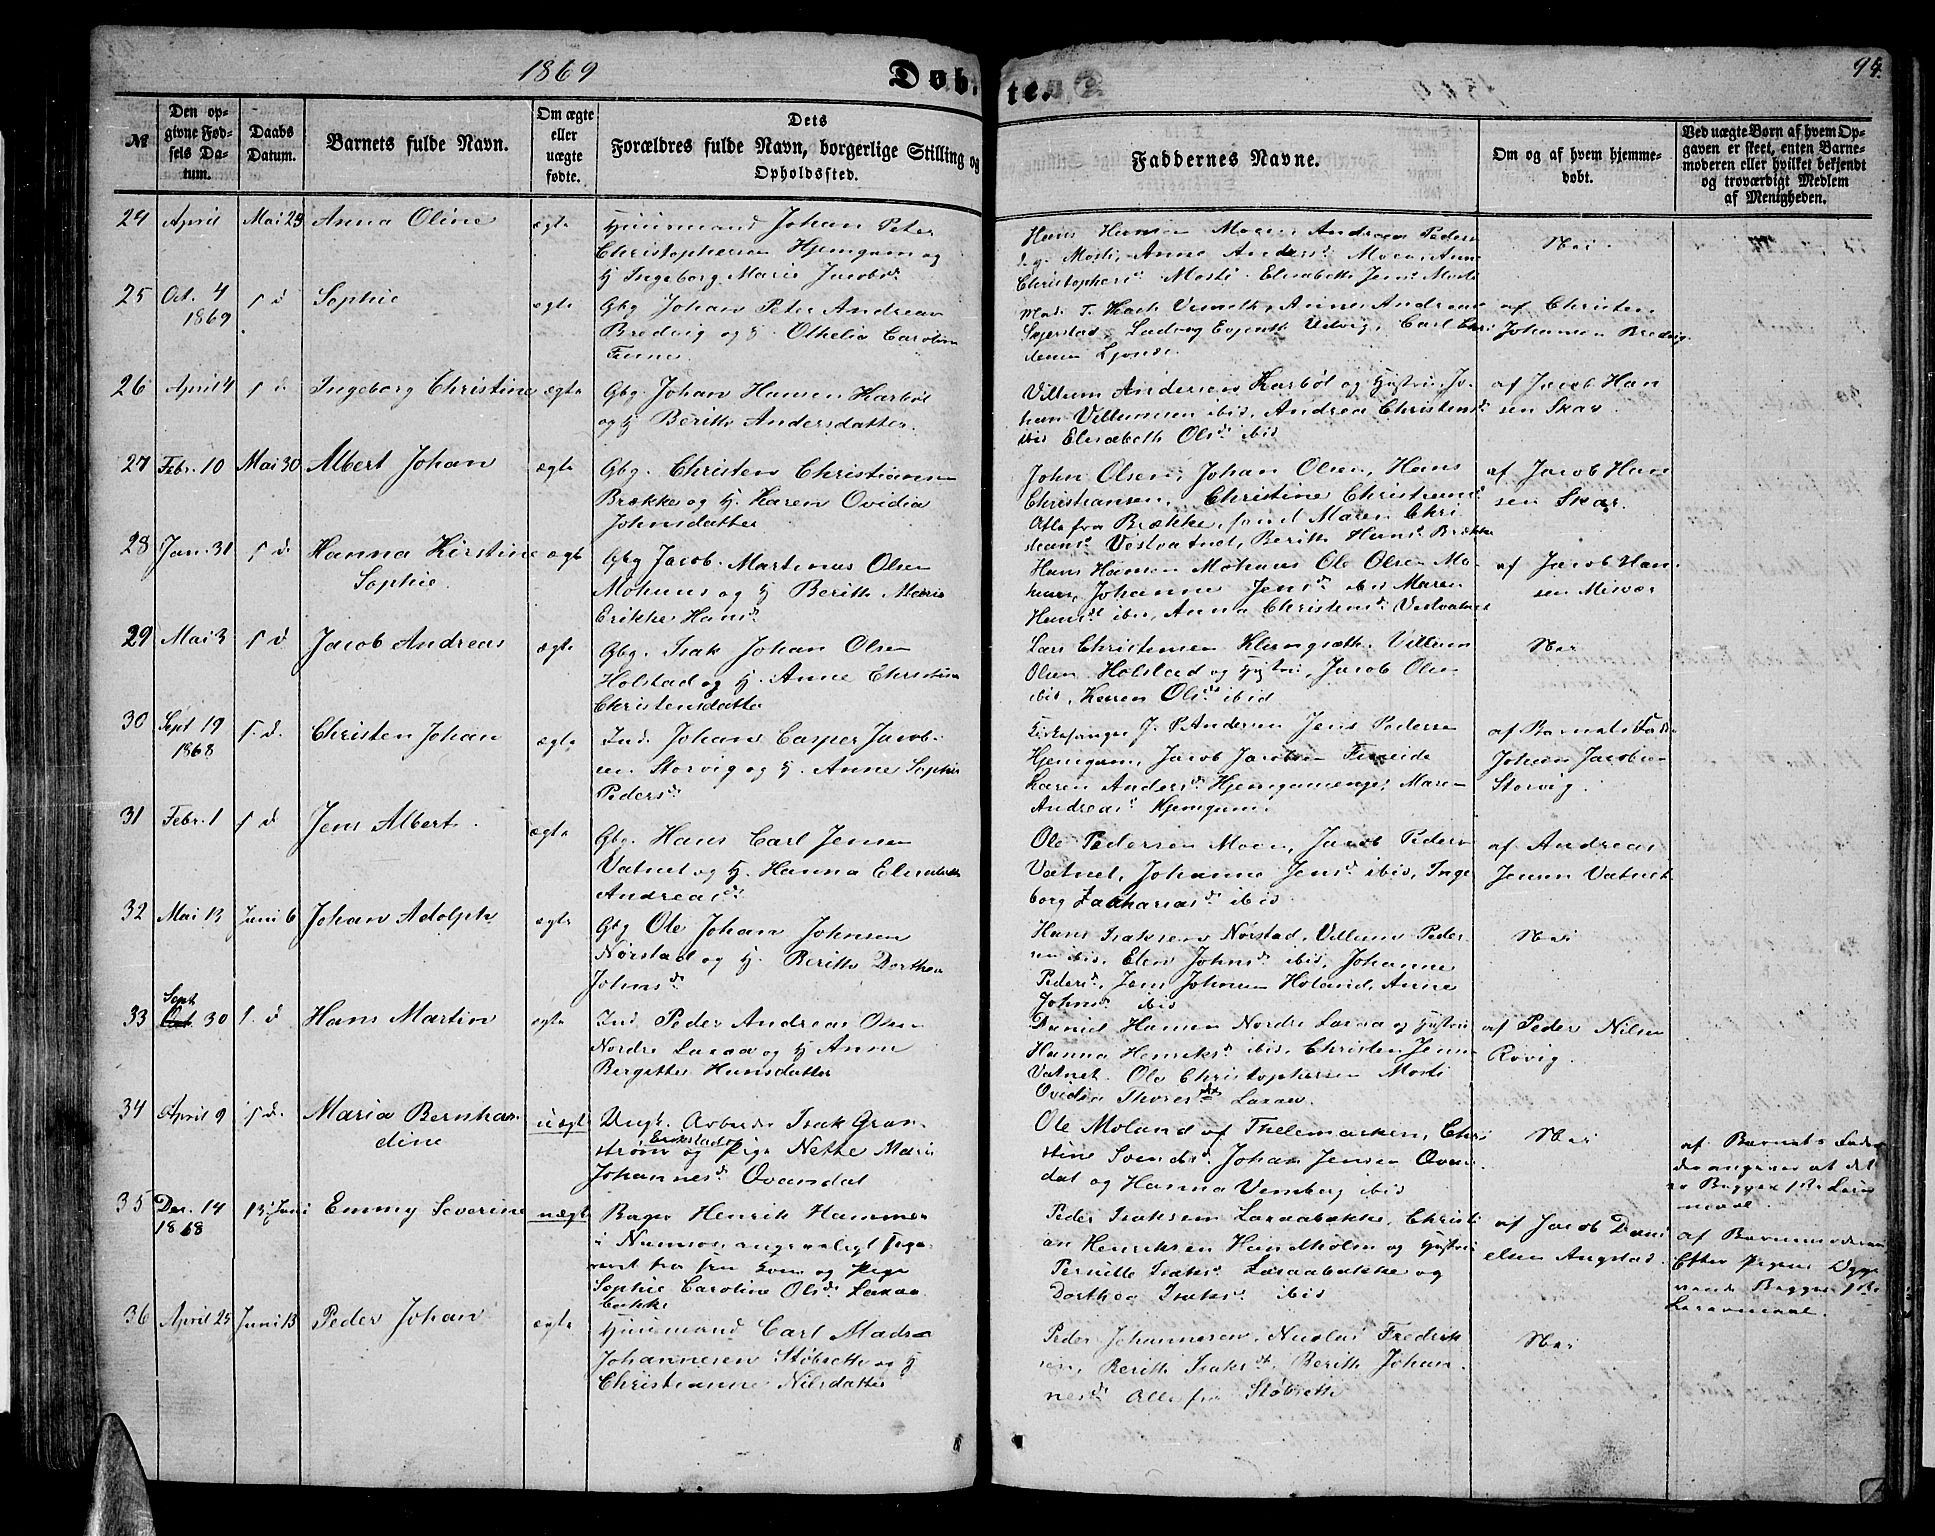 1869
Døbte.
94.
№
Den opgivne Fødsels Datum.
Daabs Datum.
Barnets fulde Navn.
Om ægte eller uægte fødte.
Dets
Forældres fulde Navn, borgerlige Stilling og
Opholdssted.
Faddernes Navne.
Om og af hvem hjemmedøbt.
Ved uægte Børn af hvem Opgaven er skeet, enten Barnemoderen eller hvilket bekjendt og troværdigt Medlem af Menigheden.
24 April Mai 23 Anna Oline ægte
Huusmand Johan Peter
Christophersen Hjemgam og
H Ingeborg Marie Jacobsd.
Hans Hansen Moen, Andreas Peders
Mosti, Anne Andersd. Moen, Ann
Christophersd. Mosti Elisabeth Jensd. Mosti
Nei
25 Oct. 4 1869 s d Sophie ægte
Gbg Johan Peter Andreas
Bredvig og H. Othelia Caroline
Anne Andreas
Ludvig
Carl
af Christen
Johansen Bredvig
26 April 4 s d Ingeborg Christine ægte
Gbg. Johan Hansen Karbøl
og H Berith Andersdatter.
Villum Andersen Karbøl og Hustru, Jo-
han Villumsen ibid, Andrea Christensd.
ibid Elisabeth Olsd. ibid
af Jacob Han
sen Skar.
27 Febr. 10 Mai 30 Albert Johan ægte
Gbg. Christen Christiansen
Brække og H. Karen Ovidia
Johnsdatter
John Olsen, Johan Olsen, Hans
Christiansen, Christine Christiansd.
Alle fra Brække, samt Maren Chri
stiansd. Vestvatnet, Berith Hansd. Brække
af Jacob Han
sen Skar.
28 Jan. 31 s d. Hanna Kirstine
Sophie.
ægte
Gbg Jacob Martinus Olsen
Mohuus og H Berith Marie
Erikke Hansd.
Hans Hansen Mohuus Ole Olsen Mo-
huus, Johanne Jensd. ibid Maren
Hansd. ibid, Anna Christensd. Vestvatnet
af Jacob Han
sen Misvær
29 Mai 3 s d Jacob Andreas ægte
Gbg. Isak Johan Olsen
Holstad og H. Anne Christine
Christensdatter
Lars Christensen Klungsæth, Villum
Olsen Holstad og Hustru, Jacob Olsen
ibid, Karen Olsd. ibid
Nei
30 Sept 19 1868 s. d. Christen Johan ægte
Ind. Johan Casper Jacob-
sen Storvig og H. Anne Sophie
Pedersd.
Kirkesanger J. P. Andersen Jens Pedersen
Hjemgam, Jacob Jacobsen
Karen Andersd. Hjemgamenge, Maren
Andreasd. Hjemgam.
af Barnets Fader
Johan Jacobsen
Storvig.
31 Febr. 1 s d Jens Albert. ægte
Gbg. Hans Carl Jensen
Vatnet og H. Hanna
Andreasd.
Ole Pedersen Moen, Jacob Pedersen
Vatnet, Johanne Jensd. ibid, Inge
borg Zachariasd. ibid
af Andreas
Jensen Vatnet
32 Mai 13 Juni 6 Johan Adolph ægte
Gbg Ole Johan Johnsen
Nørstad og H. Berith Dorthea
Johnsd.
Hans Isaksen Nørstad, Villum Peder-
sen ibid, Elen Johnsd. ibid, Johanne
Pedersd., Jens Johnsen Høland, Anne
Johnsd. ibid
Nei
33 Sept Oct. 30 s. d Hans Martin ægte
Ind Peder Andreas Olsen
Nordre Laxaa og H Anne
Bergitte Hansdatter
Daniel Hansen Nordre Laxaa og Hustru
Hanna Henriksd. ibid, Christen Jensen
Vatnet. Ole Christophersen Mosti
Ovidia Thoresd. Laxaa.
af Peder Nilsen
Røvig.
34 April 9 s d. Maria Bernhar
dine
uægte
Ungk. Arbeider Isak Gran-
strøm og Pige Nette Marie
Johannesd. Øvandal
Ole Moland af Thelemarken, Chri
stine Svendsd. Johan Jensen Øvan
dal og Hanna ibid
Nei
af Barnets Fader
der angiver at det
er Begges 1ste
35 Dec. 14 1868 13 Juni Emmy Severine uægte
Bager Henrik Hammer
i Namsos, angiveligt
og Pige
Sophie Caroline Olsd. Laxaa
bakke
Peder Isaksen Laxaabakke, Christi
an Henriksen Handholm og Hustru
Pernille Isaksd. Laxaabakke og
Dorthea Isaksd. ibid
af Jacob Dani
elsen Angstad.
af Barnemoderen
Efter Pigens Opgi
vende Begges 1ste
36 April 25 Juni 13 Peder Johan ægte
Huusmand Carl Mads
Johannesen Støbreth og H
Christianne Nilsdatter
Peder Johannesen, Nicolai Fredrik
sen, Berith Isaksd., Berith Johan
nesd. Alle fra Støbreth
Nei